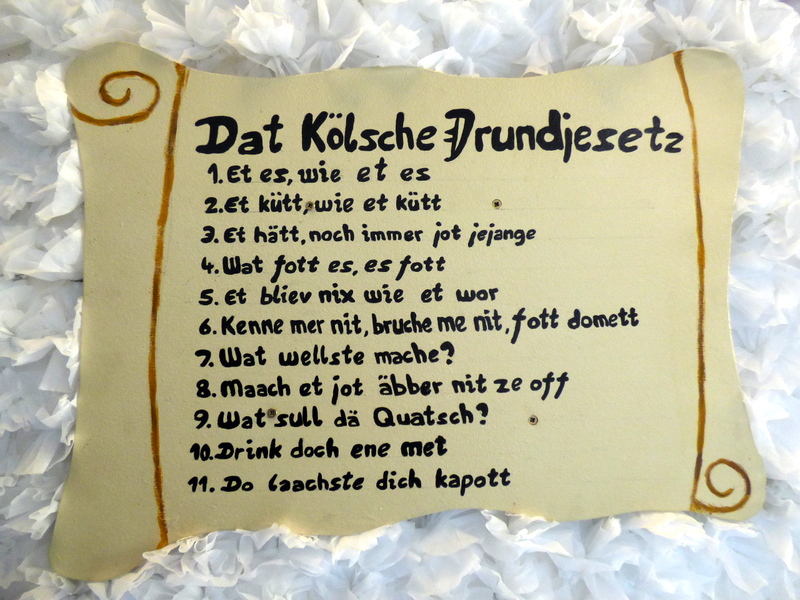 Dat Kölsche Jrundjesetz
1. Et es, wie et es
2. Et kütt, wie et kütt
3. Et hätt, noch immer jot jejange
4. Wat fott es, es fott
5. Et bliev nix wie et wor
6. Kenne mer nit, bruche me nit, fott domett
7. Wat wellste mache?
8. Maach et jot äbber nit ze off
9. Wat sull dä Quatsch?
10. Drink doch ene met
11. Do laachste dich kapott